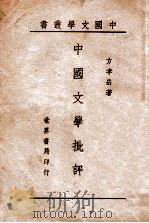 中國文學叢書
方孝岳著
中國文學批評
世界書局印行